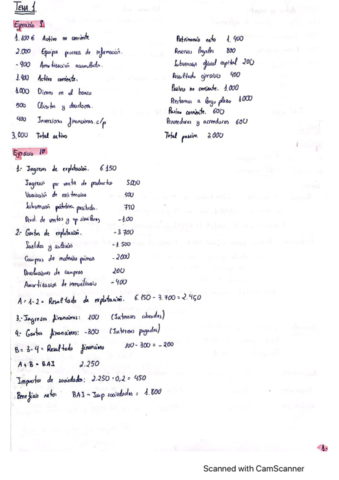 Tema 1
Ejercicio 9
1.100 € Activo no corriente
2.000 Equipo proceso de información
-900 Amortización acumulada
1.900 Activo corriente
1.000 Dinero en el banco
500 Clientes y deudores
400 Inversiones financieras c/p
3.000 Total activo
Patrimonio neto 1.400
800
capital 200
Resultado ejercicio 400
Pasivo no corriente 1.000
Préstamo a largo plazo 1.000
Pasivo corriente 600
Proveedores y acreedores 600
Total pasivo 3.000
Ejercicio 10
1.- Ingresos de explotación. 6.150
Ingresos por venta de producto 5.000
Variación de existencias
Subvención pública
Devol. de ventas y op. similares -100
2.- Gastos de explotación -3.700
Sueldos y salarios -1.500
Compras de materias primas -2.000
Devoluciones de compras 200
Amortización de inmovilizado -400
A = 1-2 = Resultado de explotación. 6.150 - 3.700 = 2.450
3.- Ingresos financieros: 100 (Intereses cobrados)
4.- Gastos financieros: -300 (Intereses pagados)
B = 3-4 = Resultado financiero 100 - 300 = -200
A + B = BAI 2.250
Impuesto de sociedades: 2.250 · 0,2 = 450
Beneficio neto: BAI - Imp sociedades = 1.800
1
Scanned with CamScanner